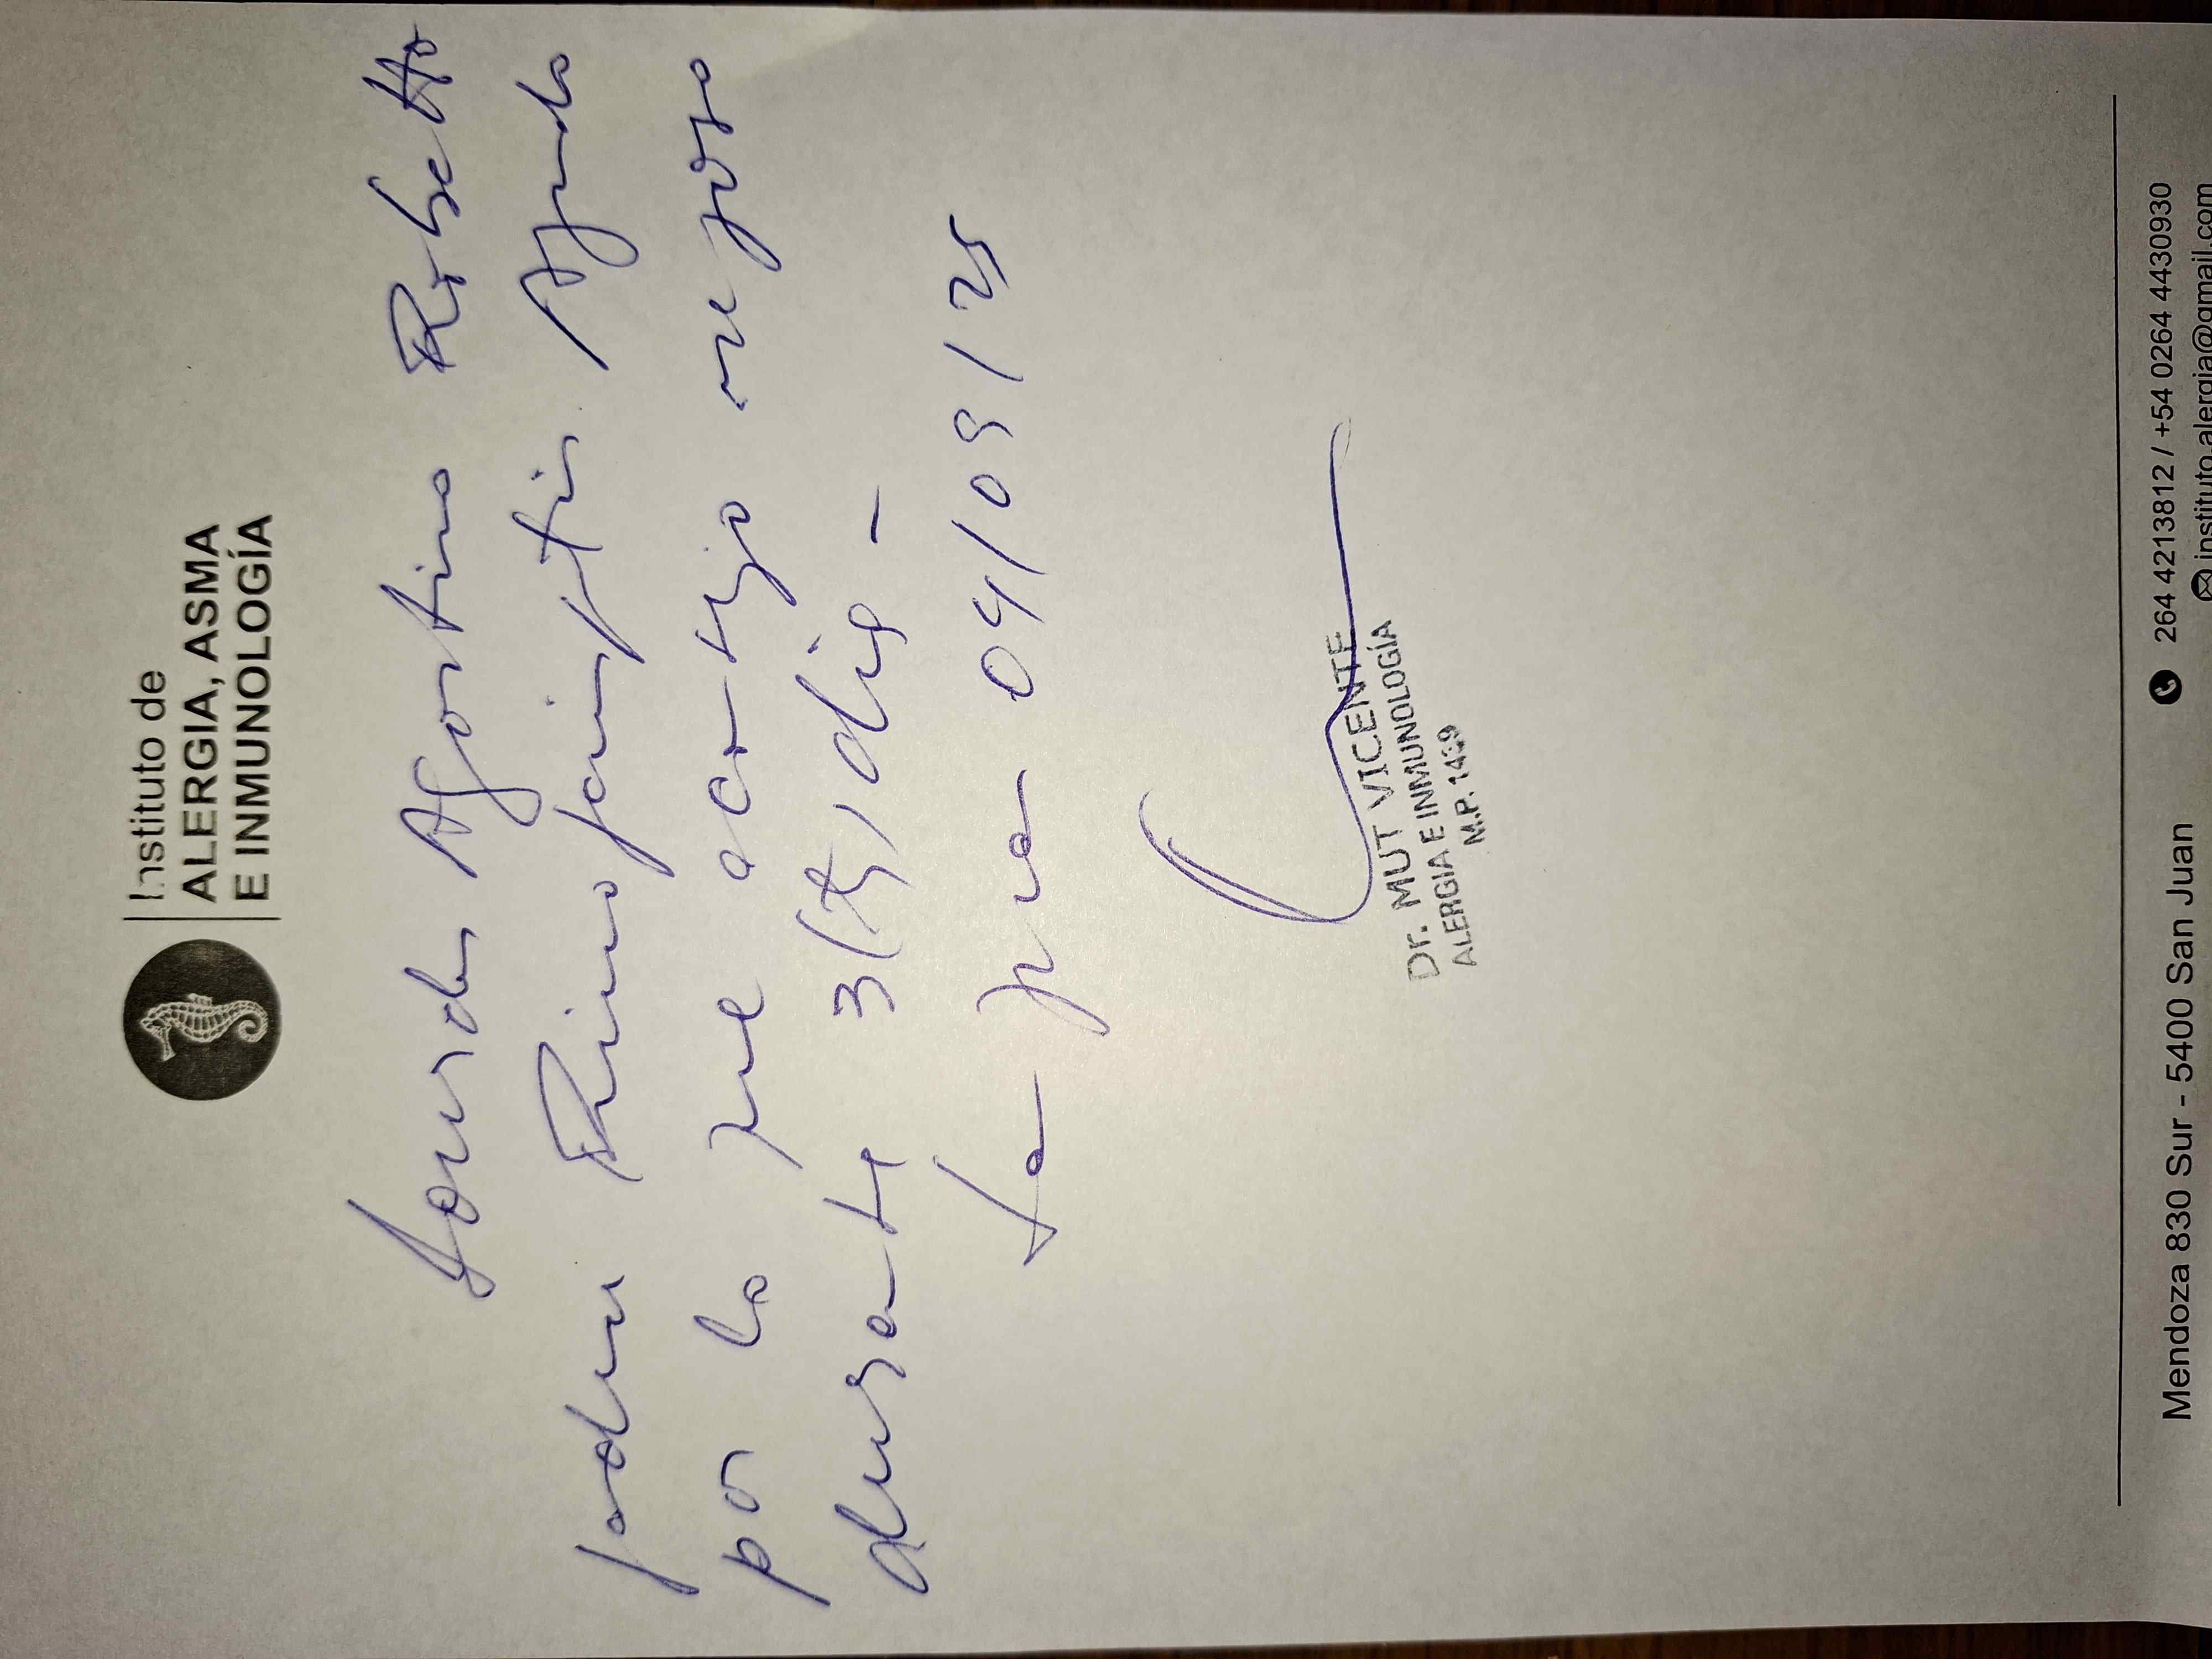 Instituto de
ALERGIA, ASMA
E INMUNOLOGÍA
Lourdes Agostina Rebsetto
padece Rinofaringitis Aguda
por lo que aconsejo reposo
durante 3 (tres) días -
San Juan 04/09/25
Dr. MUT VICENTE
ALERGIA E INMUNOLOGÍA
M.P.
Mendoza 830 Sur - 5400 San Juan
264 4213812 / +54 0264 4430930
instituto.alergia@gmail.com